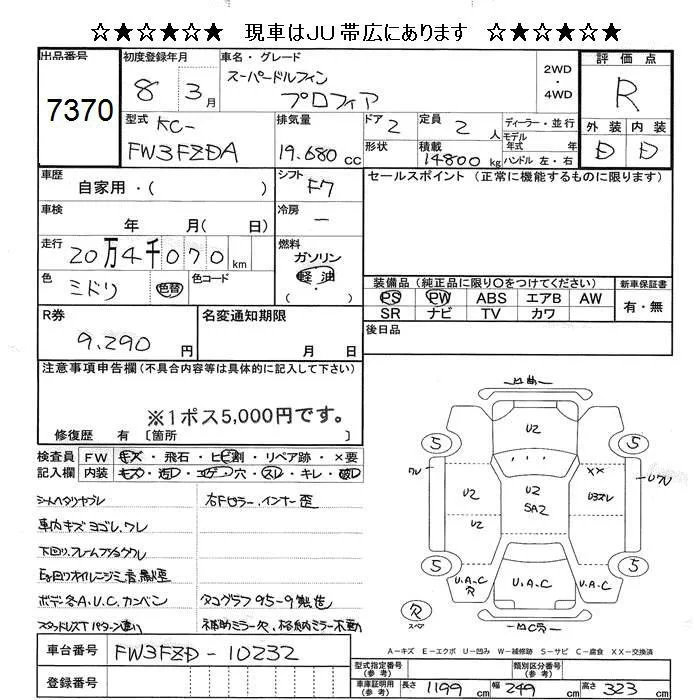 ☆★☆★☆★ 現車はJU帯広にあります ☆★☆★☆★
出品番号 7370
初度登録年月 8 3月
車名・グレード スーパードルフィン プロフィア
2WD ・ 4WD
評価点 R
外装 D 内装 D
型式 KC-FW3FZDA
排気量 19.680 cc
ドア 2
形状
定員 2人
積載 14800 kg
ディーラー・並行
モデル年式 年式
ハンドル 左・右
車歴 自家用・( )
シフト F7
セールスポイント (正常に機能するものに限ります)
車検 年 月( 日)
冷房 ー
走行 20万4千070 km
燃料 ガソリン 軽油 ( )
色 ミドリ 色替
色コード
装備品 (純正品に限り○をつけてください)
PS PW ABS エアB AW
SR ナビ TV カワ
新車保証書 有・無
R券 9.290 円
名変通知期限 月 日
後日品
注意事項申告欄 (不具合内容等は具体的に記入して下さい)
※1ポス5,000円です。
修復歴 有 〔箇所 〕
検査員記入欄
FW キズ・飛石・ヒビ割・リペア跡・×要
内装 キズ・汚レ・コゲ・穴・スレ・キレ・破レ
シートヘタリヤブレ
車内キズヨゴレ、ワレ
下回り、フレームサビ
Eg回りオイルニジミ
ボデー各A.U.C.カンバン
スタッドレスT パターン違い
右Fセラー、インナー歪
タコグラフ95-9製造
補助ミラー欠、格納ミラー不動
車台番号 FW3FZD-10232
登録番号
U凹
U2
5 5
ワレ
××
Uワレ
U2
U2
SA2
U3スレ
U2
5 5
U.A.C R
U.A.C
U.A.C
R スペア
凹C穴
A-キズ E-エクボ U-凹み W-補修跡 S-サビ C-腐食 XX-交換済
型式指定番号 (参考)
類別区分番号 (参考)
車庫証明用 (参考) 長さ 1199 cm 幅 249 cm 高さ 323 cm